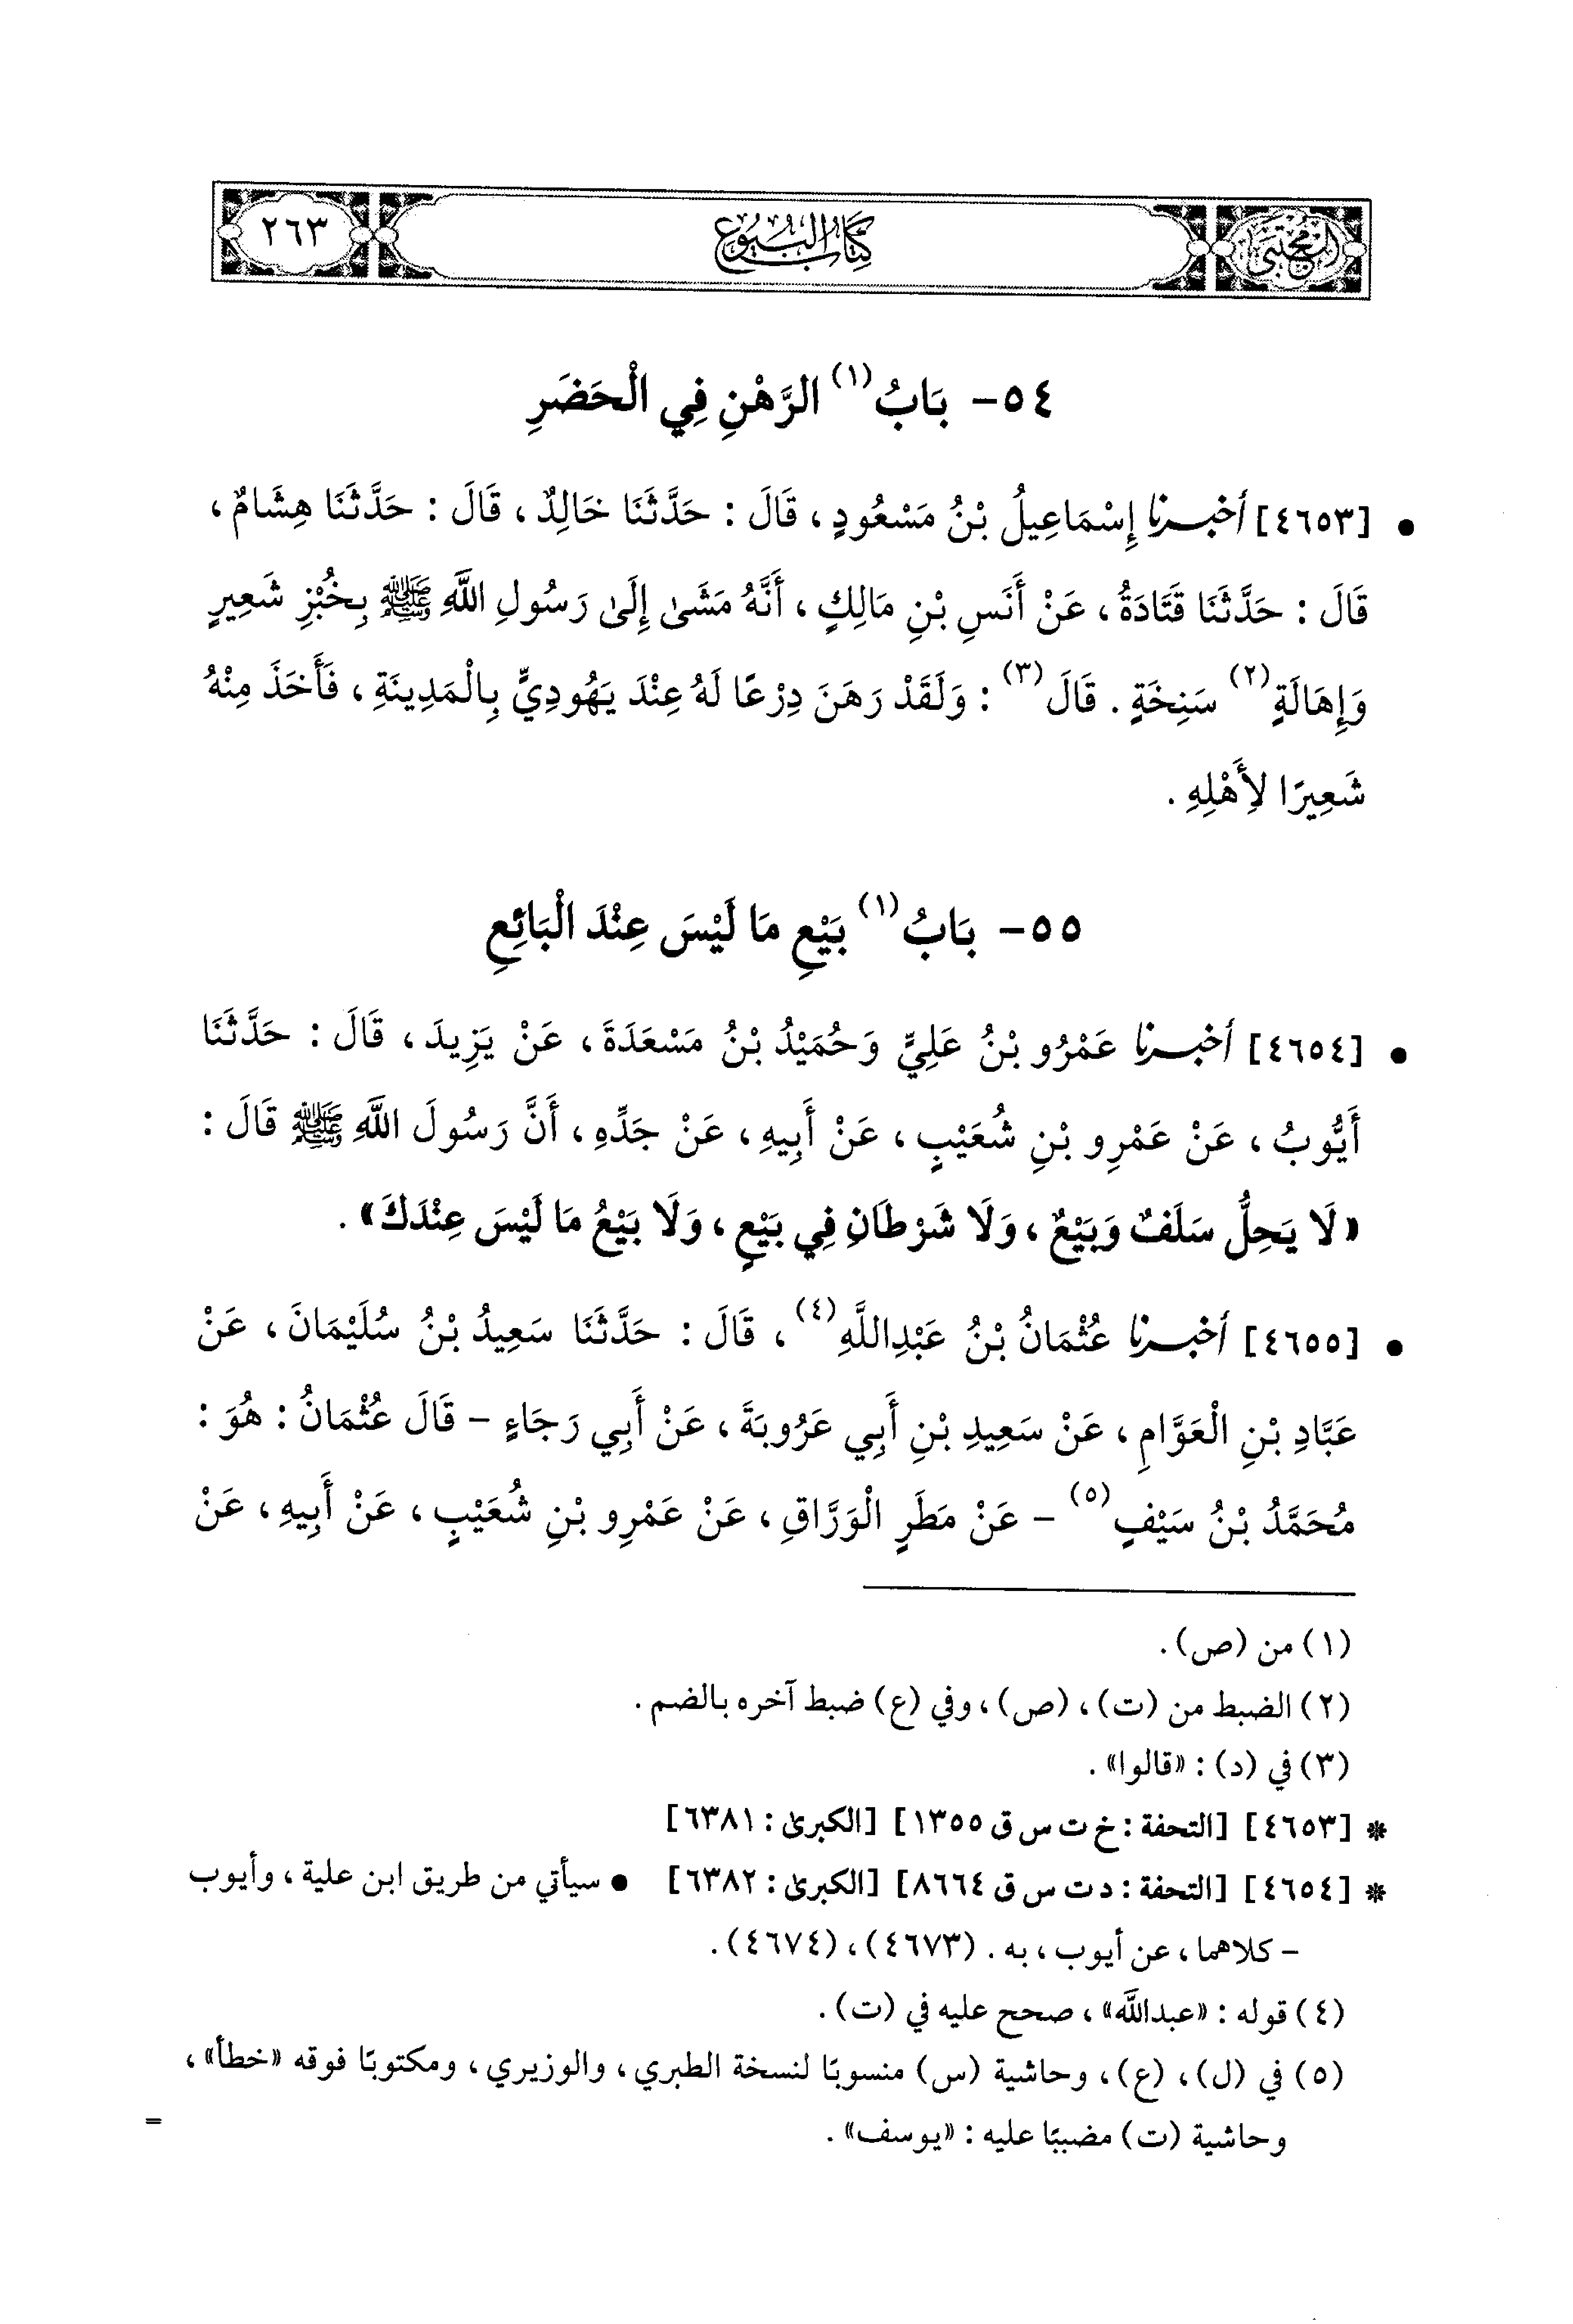 المجتبى
كتاب البيوع
٢٦٣
٥٤- بَابُ(١) الرَّهْنِ فِي الْحَضَرِ
• [٤٦٥٣] أخبرنا إِسْمَاعِيلُ بْنُ مَسْعُودٍ، قَالَ: حَدَّثَنَا خَالِدٌ، قَالَ: حَدَّثَنَا هِشَامٌ،
قَالَ: حَدَّثَنَا قَتَادَةُ، عَنْ أَنَسِ بْنِ مَالِكٍ، أَنَّهُ مَشَى إِلَى رَسُولِ اللَّهِ ﷺ بِخُبْزِ شَعِيرٍ
وَإِهَالَةٍ(٢) سَنِخَةٍ. قَالَ(٣): وَلَقَدْ رَهَنَ دِرْعًا لَهُ عِنْدَ يَهُودِيٍّ بِالْمَدِينَةِ، فَأَخَذَ مِنْهُ
شَعِيرًا لِأَهْلِهِ.
٥٥- بَابُ(١) بَيْعِ مَا لَيْسَ عِنْدَ الْبَائِعِ
• [٤٦٥٤] أخبرنا عَمْرُو بْنُ عَلِيٍّ وَحُمَيْدُ بْنُ مَسْعَدَةَ، عَنْ يَزِيدَ، قَالَ: حَدَّثَنَا
أَيُّوبُ، عَنْ عَمْرِو بْنِ شُعَيْبٍ، عَنْ أَبِيهِ، عَنْ جَدِّهِ، أَنَّ رَسُولَ اللَّهِ ﷺ قَالَ:
«لَا يَحِلُّ سَلَفٌ وَبَيْعٌ، وَلَا شَرْطَانِ فِي بَيْعٍ، وَلَا بَيْعُ مَا لَيْسَ عِنْدَكَ».
• [٤٦٥٥] أخبرنا عُثْمَانُ بْنُ عَبْدِاللَّهِ(٤)، قَالَ: حَدَّثَنَا سَعِيدُ بْنُ سُلَيْمَانَ، عَنْ
عَبَّادِ بْنِ الْعَوَّامِ، عَنْ سَعِيدِ بْنِ أَبِي عَرُوبَةَ، عَنْ أَبِي رَجَاءٍ - قَالَ عُثْمَانُ: هُوَ:
مُحَمَّدُ بْنُ سَيْفٍ(٥) - عَنْ مَطَرٍ الْوَرَّاقِ، عَنْ عَمْرِو بْنِ شُعَيْبٍ، عَنْ أَبِيهِ، عَنْ
(١) من (ص).
(٢) الضبط من (ت)، (ص)، وفي (ع) ضبط آخره بالضم.
(٣) في (د): «قالوا».
* [٤٦٥٣] [التحفة: خ ت س ق ١٣٥٥] [الكبرى: ٦٣٨١]
* [٤٦٥٤] [التحفة: د ت س ق ٨٦٦٤] [الكبرى: ٦٣٨٢] • سيأتي من طريق ابن علية، وأيوب
- كلاهما، عن أيوب، به. (٤٦٧٣)، (٤٦٧٤).
(٤) قوله: «عبدالله»، صحح عليه في (ت).
(٥) في (ل)، (ع)، وحاشية (س) منسوبًا لنسخة الطبري، والوزيري، ومكتوبًا فوقه «خطأ»،
وحاشية (ت) مضببًا عليه: «يوسف».
=